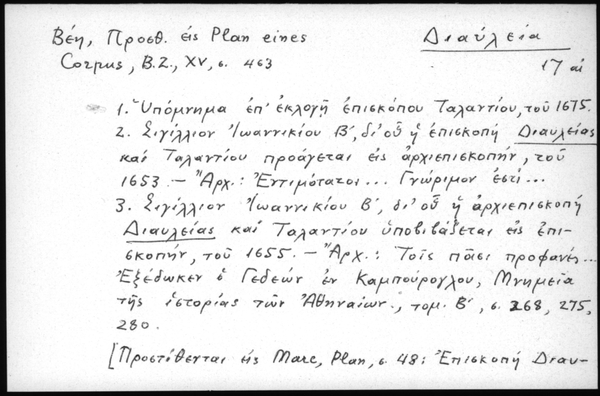 Βέη, Προσθ. εἰς Plan eines
Διαύλεια
Corpus, B.Z., XV, σ. 463
17 αἰ
1. Ὑπόμνημα ἐπ' ἐκλογῇ ἐπισκόπου Ταλαντίου, τοῦ 1675.
2. Σιγίλλιον Ἰωαννικίου Β΄, δι' οὗ ἡ ἐπισκοπή Διαυλείας
καί Ταλαντίου προάγεται εἰς ἀρχιεπισκοπήν, τοῦ
1653. — Ἀρχ.: Ἐντιμότατοι... Γνώριμον ἐστί...
3. Σιγίλλιον Ἰωαννικίου Β΄, δι' οὗ ἡ ἀρχιεπισκοπή
Διαυλείας καί Ταλαντίου ὑποβιβάζεται εἰς ἐπι-
σκοπήν, τοῦ 1655. — Ἀρχ.: Τοῖς πᾶσι προφανές...
Ἐξέδωκεν ὁ Γεδεών ἐν Καμπούρογλου, Μνημεῖα
τῆς ἱστορίας τῶν Ἀθηναίων, τομ. Β΄, σ. 268, 275,
280.
[Προστίθενται εἰς Marc, Plan, σ. 48: Ἐπισκοπή Διαυ-